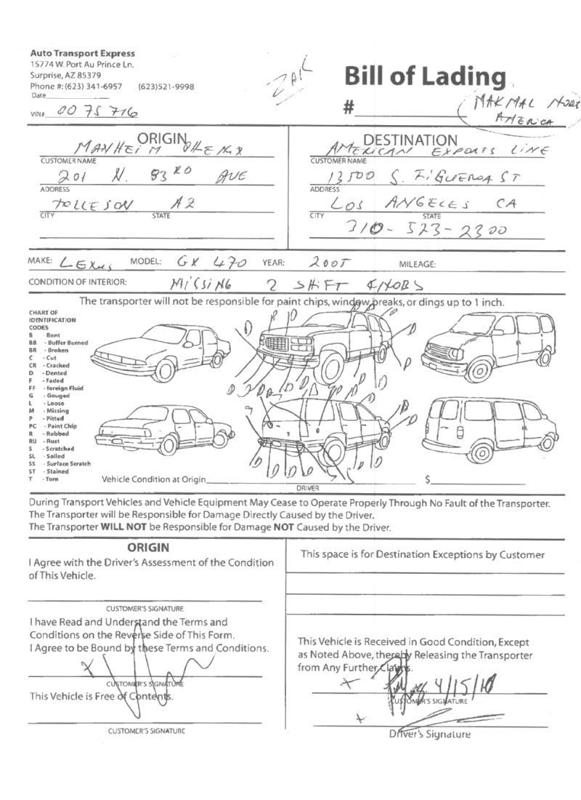 Auto Transport Express
15774 W. Port Au Prince Ln.
Surprise, AZ 85379
Phone #: (623) 341-6957 (623)521-9998
Date
VIN# 0075716
Bill of Lading
#
MAKMAL
AMERICA
ORIGIN
MANHEIM
CUSTOMER NAME
201 N. 83RD AVE
ADDRESS
TOLLESON AZ
CITY STATE
DESTINATION
AMERICAN EXPORTS LINE
CUSTOMER NAME
13500 S. FIGUEROA ST
ADDRESS
LOS ANGELES CA
CITY STATE
310-523-2300
MAKE: Lexus MODEL: GX 470 YEAR: 2005 MILEAGE:
CONDITION OF INTERIOR: MISSING 2 SHIFT KNOBS
The transporter will not be responsible for paint chips, window breaks, or dings up to 1 inch.
CHART OF
IDENTIFICATION
CODES
B - Bent
BB - Buffer Burned
BR - Broken
C - Cut
CR - Cracked
D - Dented
F - Faded
FF - foreign Fluid
G - Gouged
L - Loose
M - Missing
P - Pitted
PC - Paint Chip
R - Rubbed
RU - Rust
S - Scratched
SL - Soiled
SS - Surface Scratch
ST - Stained
T - Torn
Vehicle Condition at Origin
DRIVER
$
During Transport Vehicles and Vehicle Equipment May Cease to Operate Properly Through No Fault of the Transporter.
The Transporter will be Responsible for Damage Directly Caused by the Driver.
The Transporter WILL NOT be Responsible for Damage NOT Caused by the Driver.
ORIGIN
I Agree with the Driver's Assessment of the Condition
of This Vehicle.
CUSTOMER'S SIGNATURE
I have Read and Understand the Terms and
Conditions on the Reverse Side of This Form.
I Agree to be Bound by these Terms and Conditions.
X
CUSTOMER'S SIGNATURE
This Vehicle is Free of Contents.
CUSTOMER'S SIGNATURE
This space is for Destination Exceptions by Customer
This Vehicle is Received in Good Condition, Except
as Noted Above, thereby Releasing the Transporter
from Any Further Claims.
X 4/15/10
CUSTOMER'S SIGNATURE
X
Driver's Signature